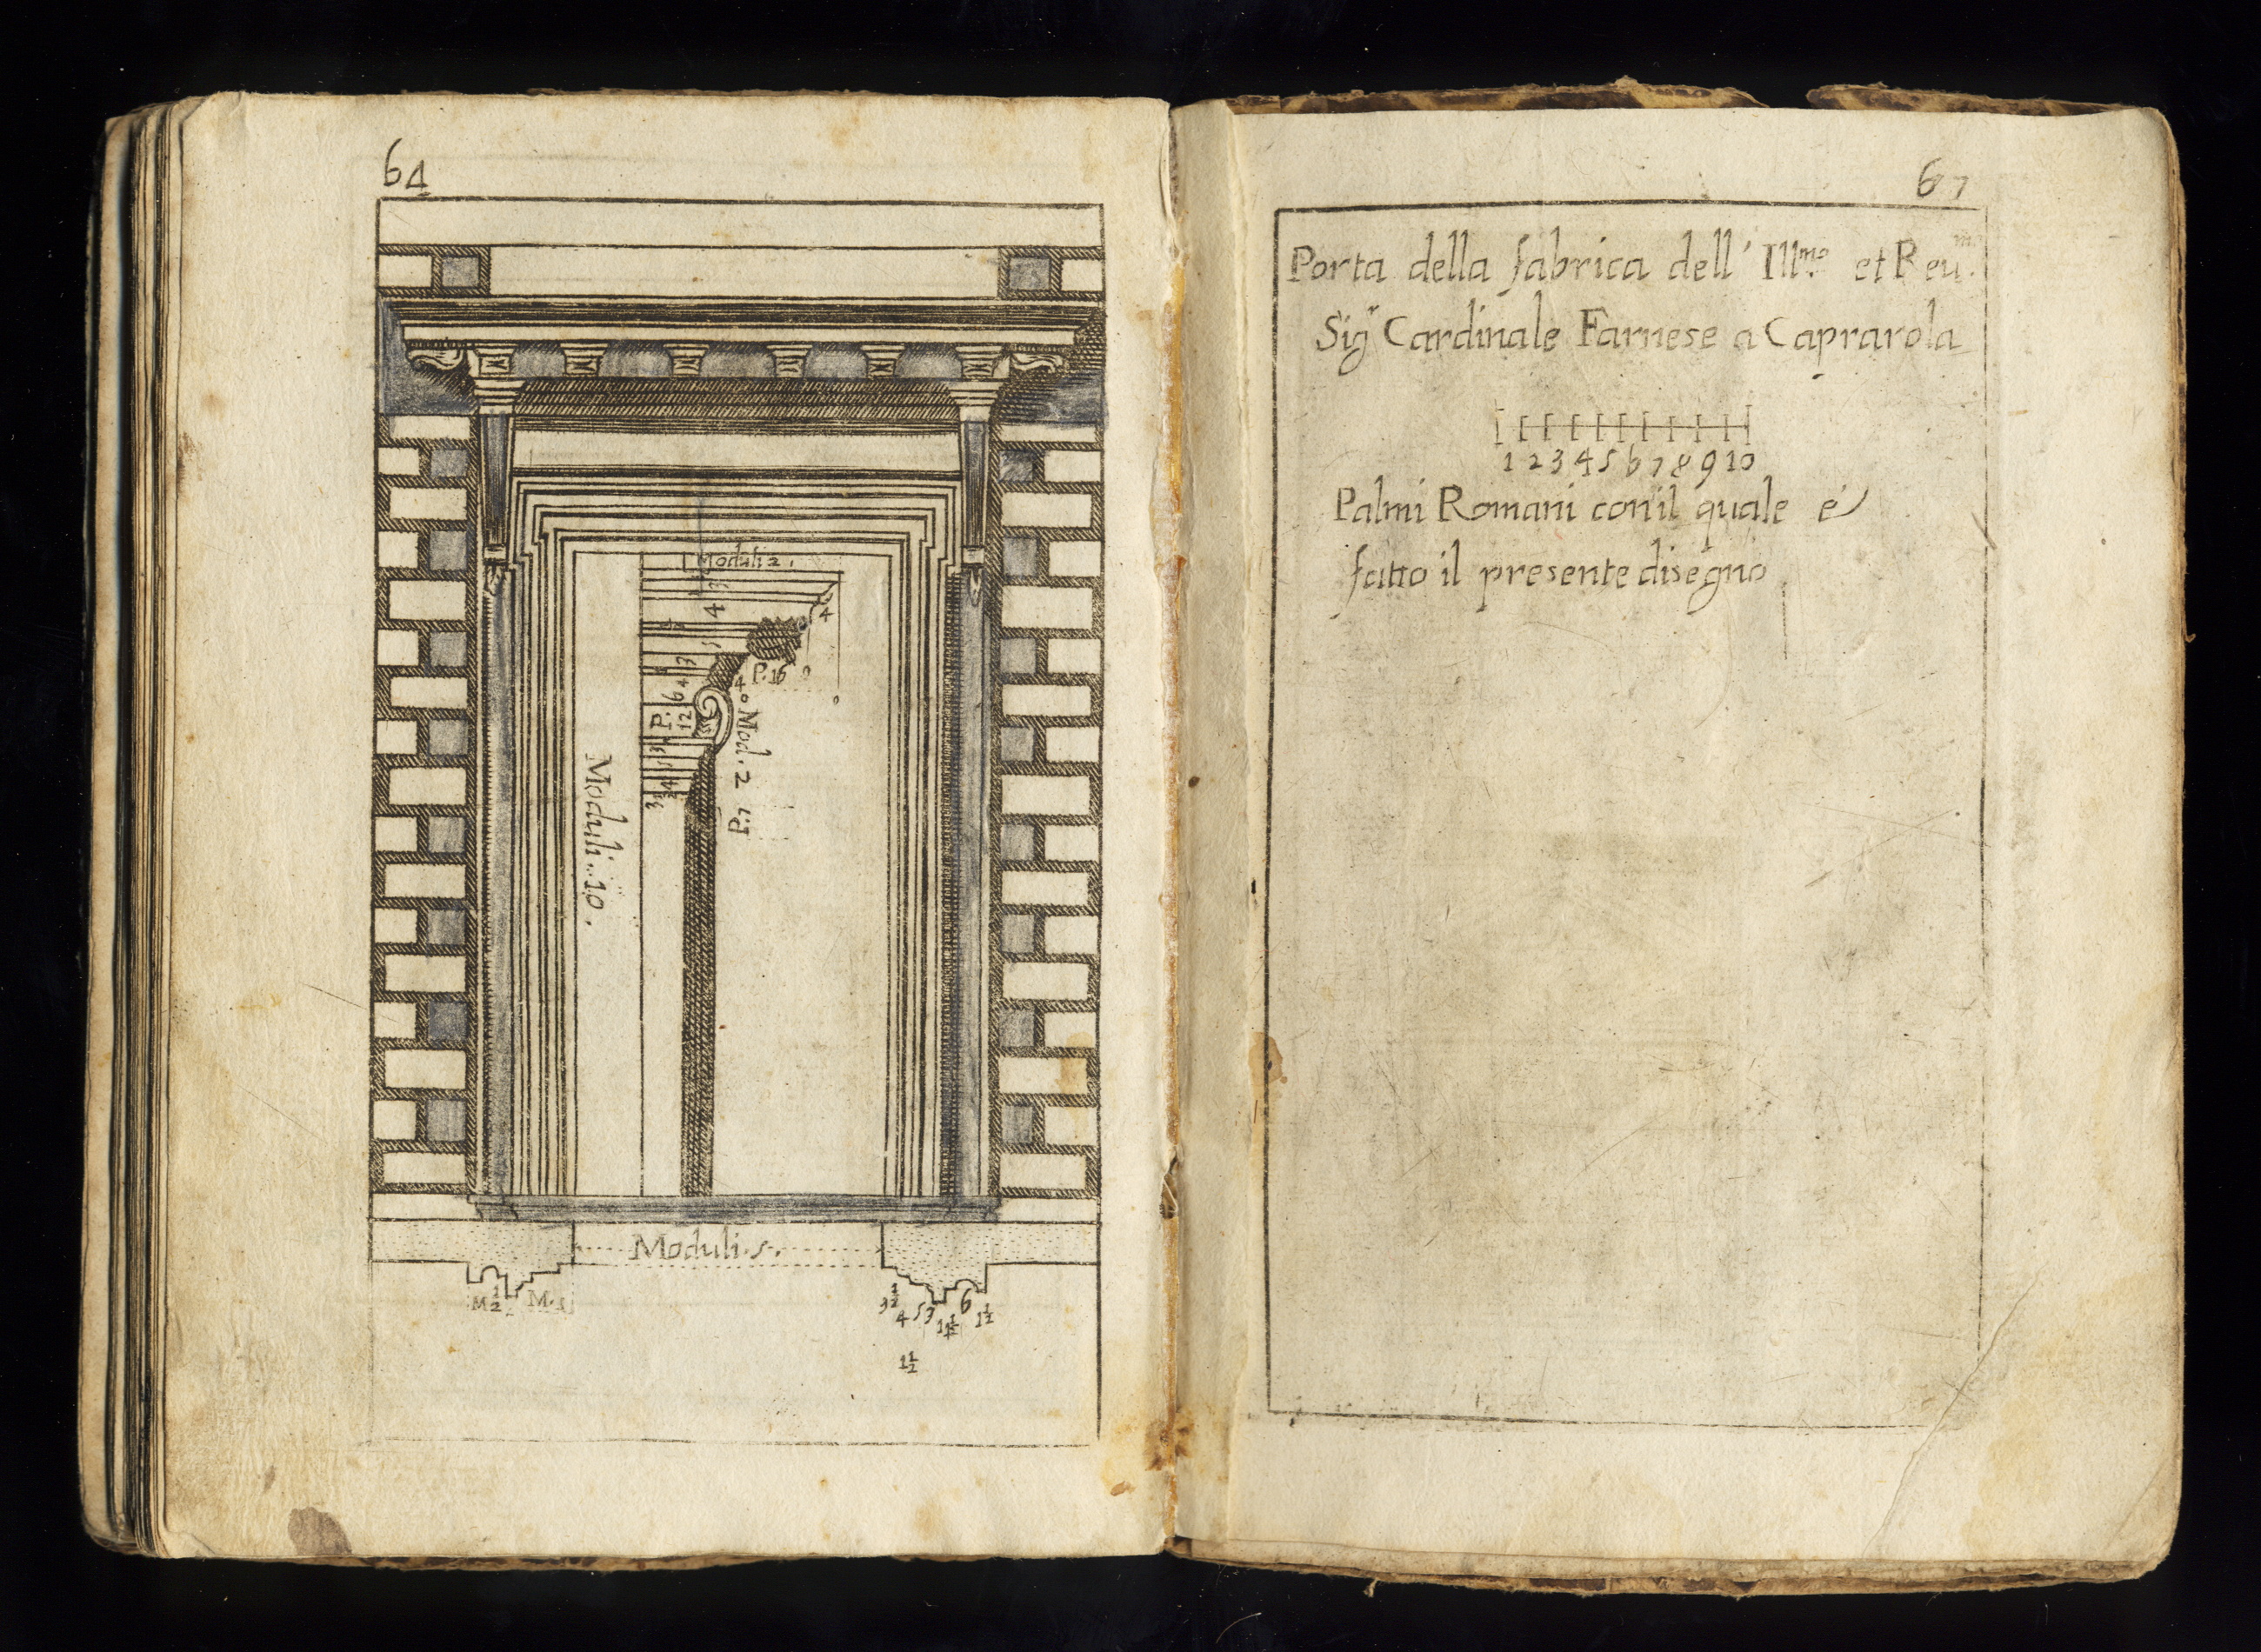 64
Moduli 2.
4
4
P. 16
3
4
4
6
P.
12
Mod. 2 P. 7
3
Moduli..10.
Moduli.5.
M 1/2
M.1
3 1/2
4
5
3
6
1 1/2
1 1/2
67
Porta della fabrica dell' Ill.mo et Reu.m
Sigr Cardinale Farnese a Caprarola
1 2 3 4 5 6 7 8 9 10
Palmi Romani con il quale é
fatto il presente disegno